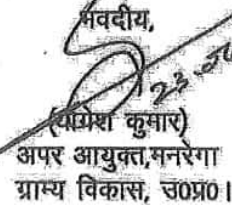 भवदीय,
23.04
(योगेश कुमार)
अपर आयुक्त,मनरेगा
ग्राम्य विकास, उ0प्र0।